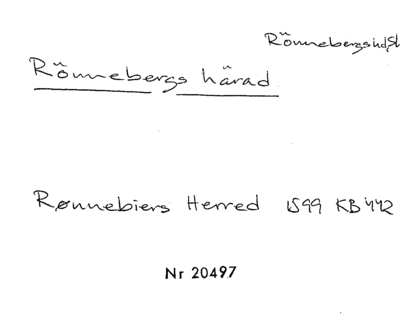 Rönnebergs hd, Sk
Rönnebergs härad
Rønnebiers Herred 1599 KB 442
Nr 20497